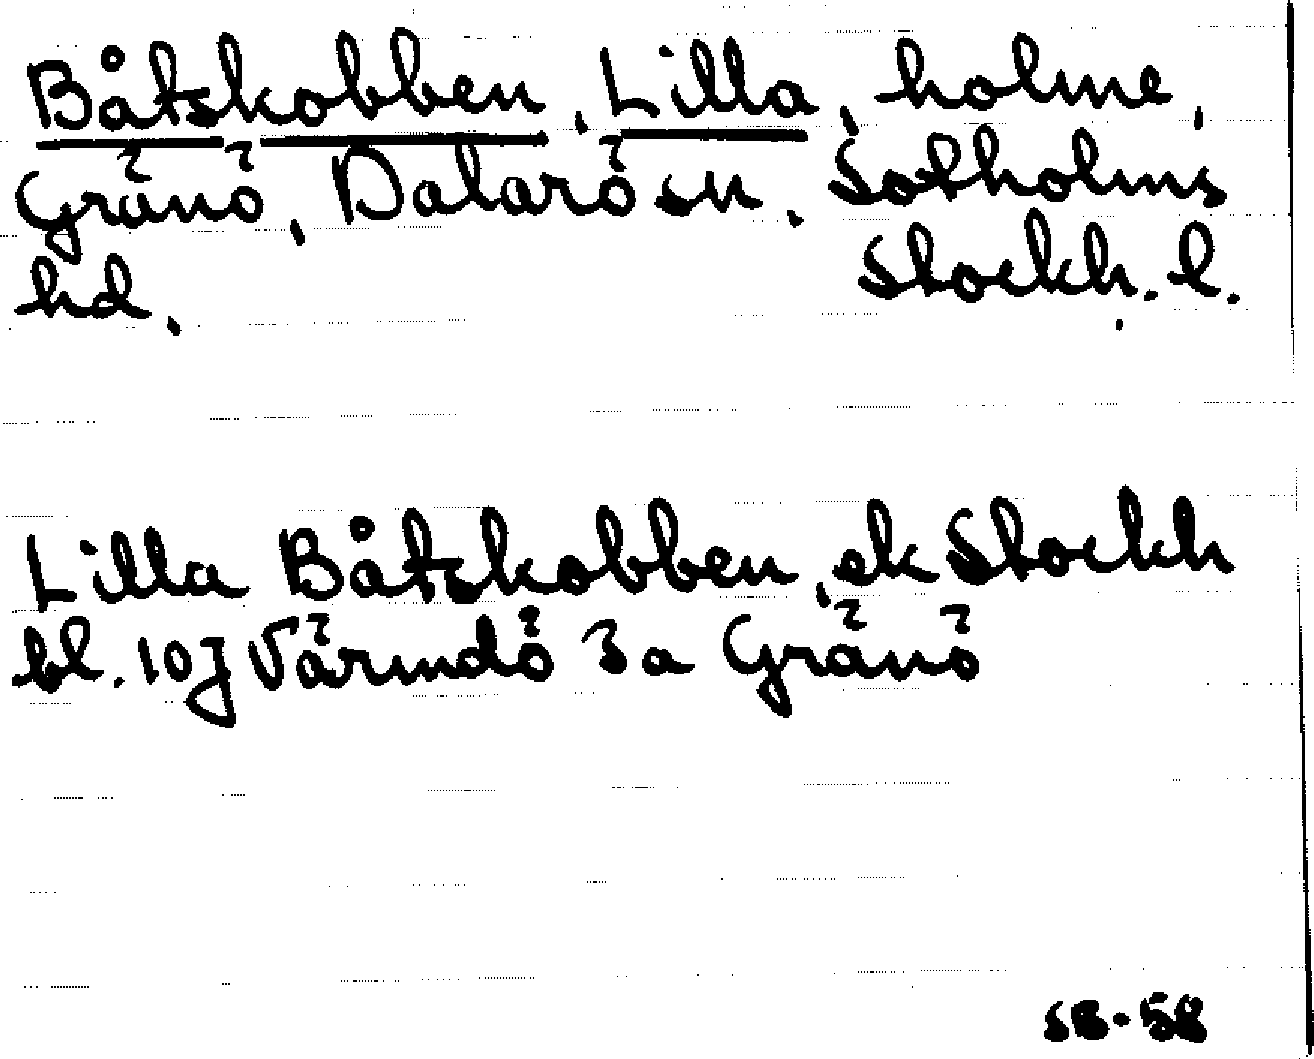 Båtskobben, Lilla, holme,
Gränö, Dalarö sn. Sotholms
hd. Stockh. l.
Lilla Båtskobben, ek Stockh
bl. 10J Värmdö 3a Gränö
SB-58